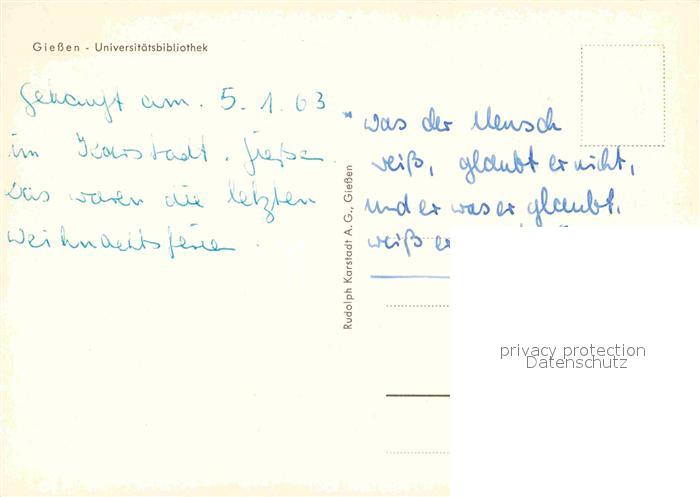 Gießen - Universitätsbibliothek
Gekauft am. 5. 1. 63
im Karstadt. Gießen.
Das waren die letzten
Weihnachtsferien.
Rudolph Karstadt A. G., Gießen
"Was der Mensch
weiß, glaubt er nicht,
und er was er glaubt,
weiß er
privacy protection
Datenschutz